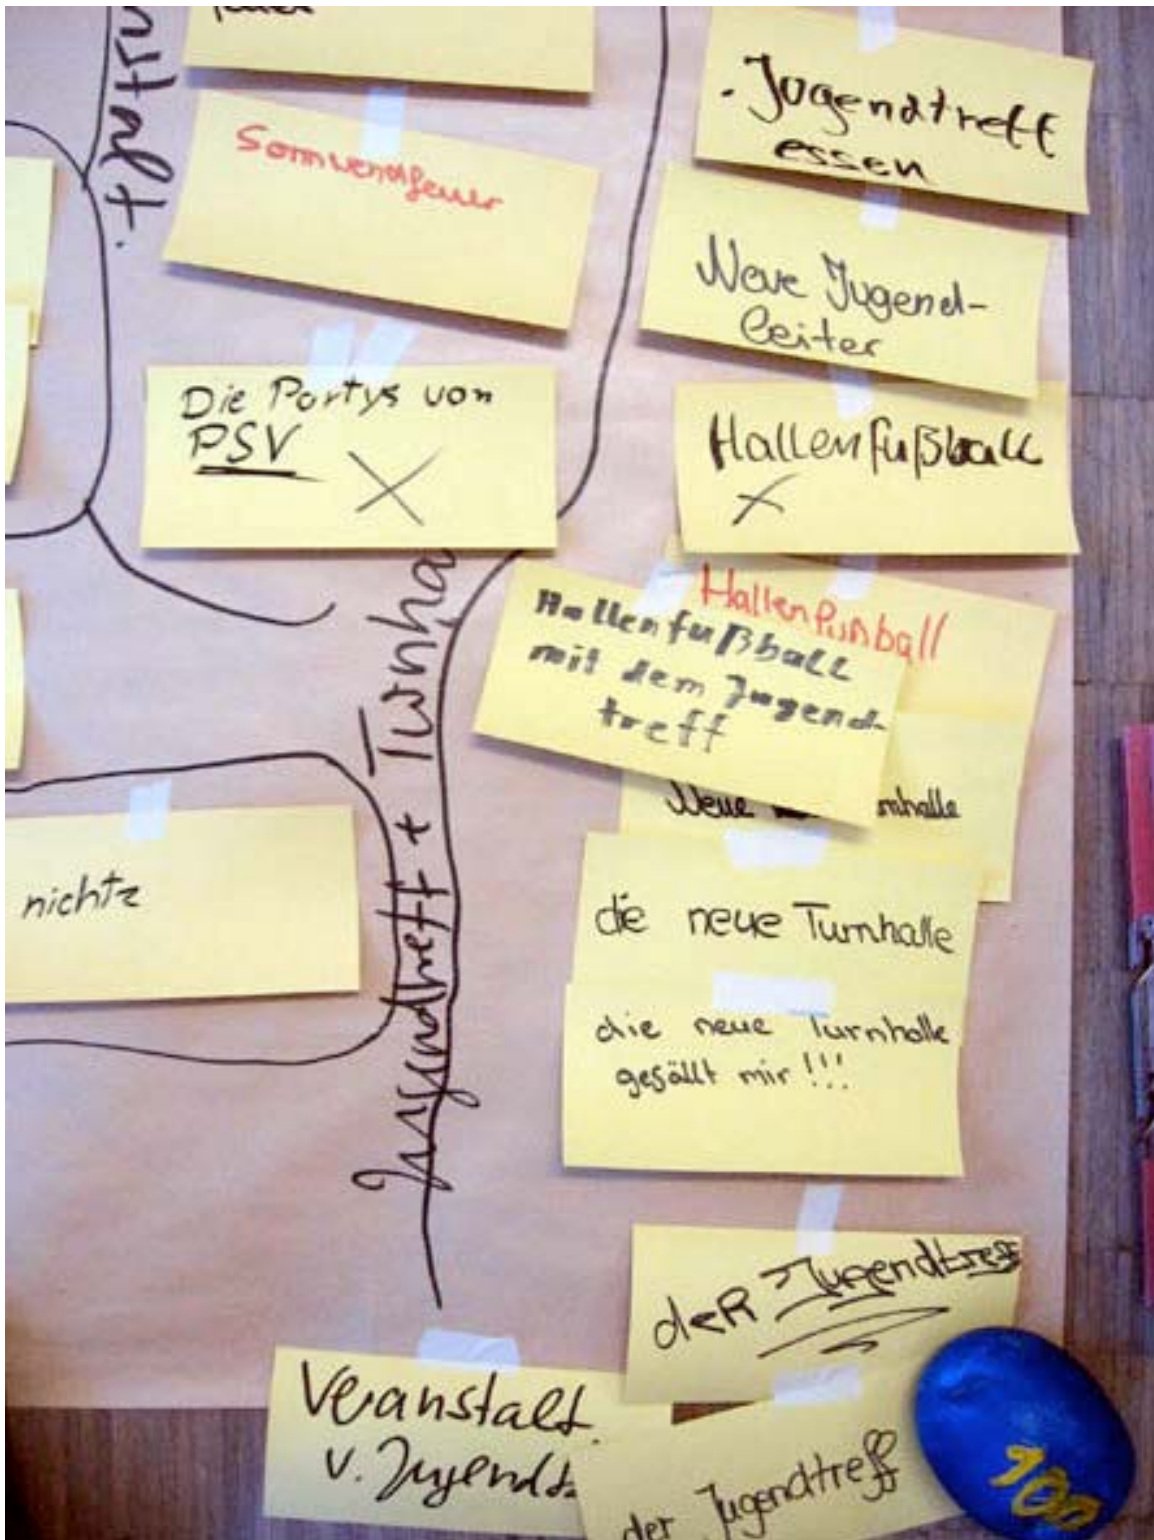 Sonnwendfeuer
Die Partys von
PSV
X
nichts
Jugendtreff + Turnha
. Jugendtreff
essen
Neue Jugend-
leiter
Hallenfußball
X
Hallenfußball
Hallenfußball
mit dem Jugend-
treff
Neue
rnhalle
die neue Turnhalle
die neue Turnhalle
gefällt mir!!!
deR Jugendtreff
Veranstalt.
v. Jugendt.
der Jugendtreff
100